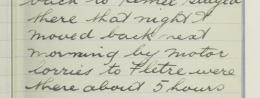 back to Kemel stayed
there that night &
moved back next
morning by motor
lorries to Fletre were
there about 5 hours